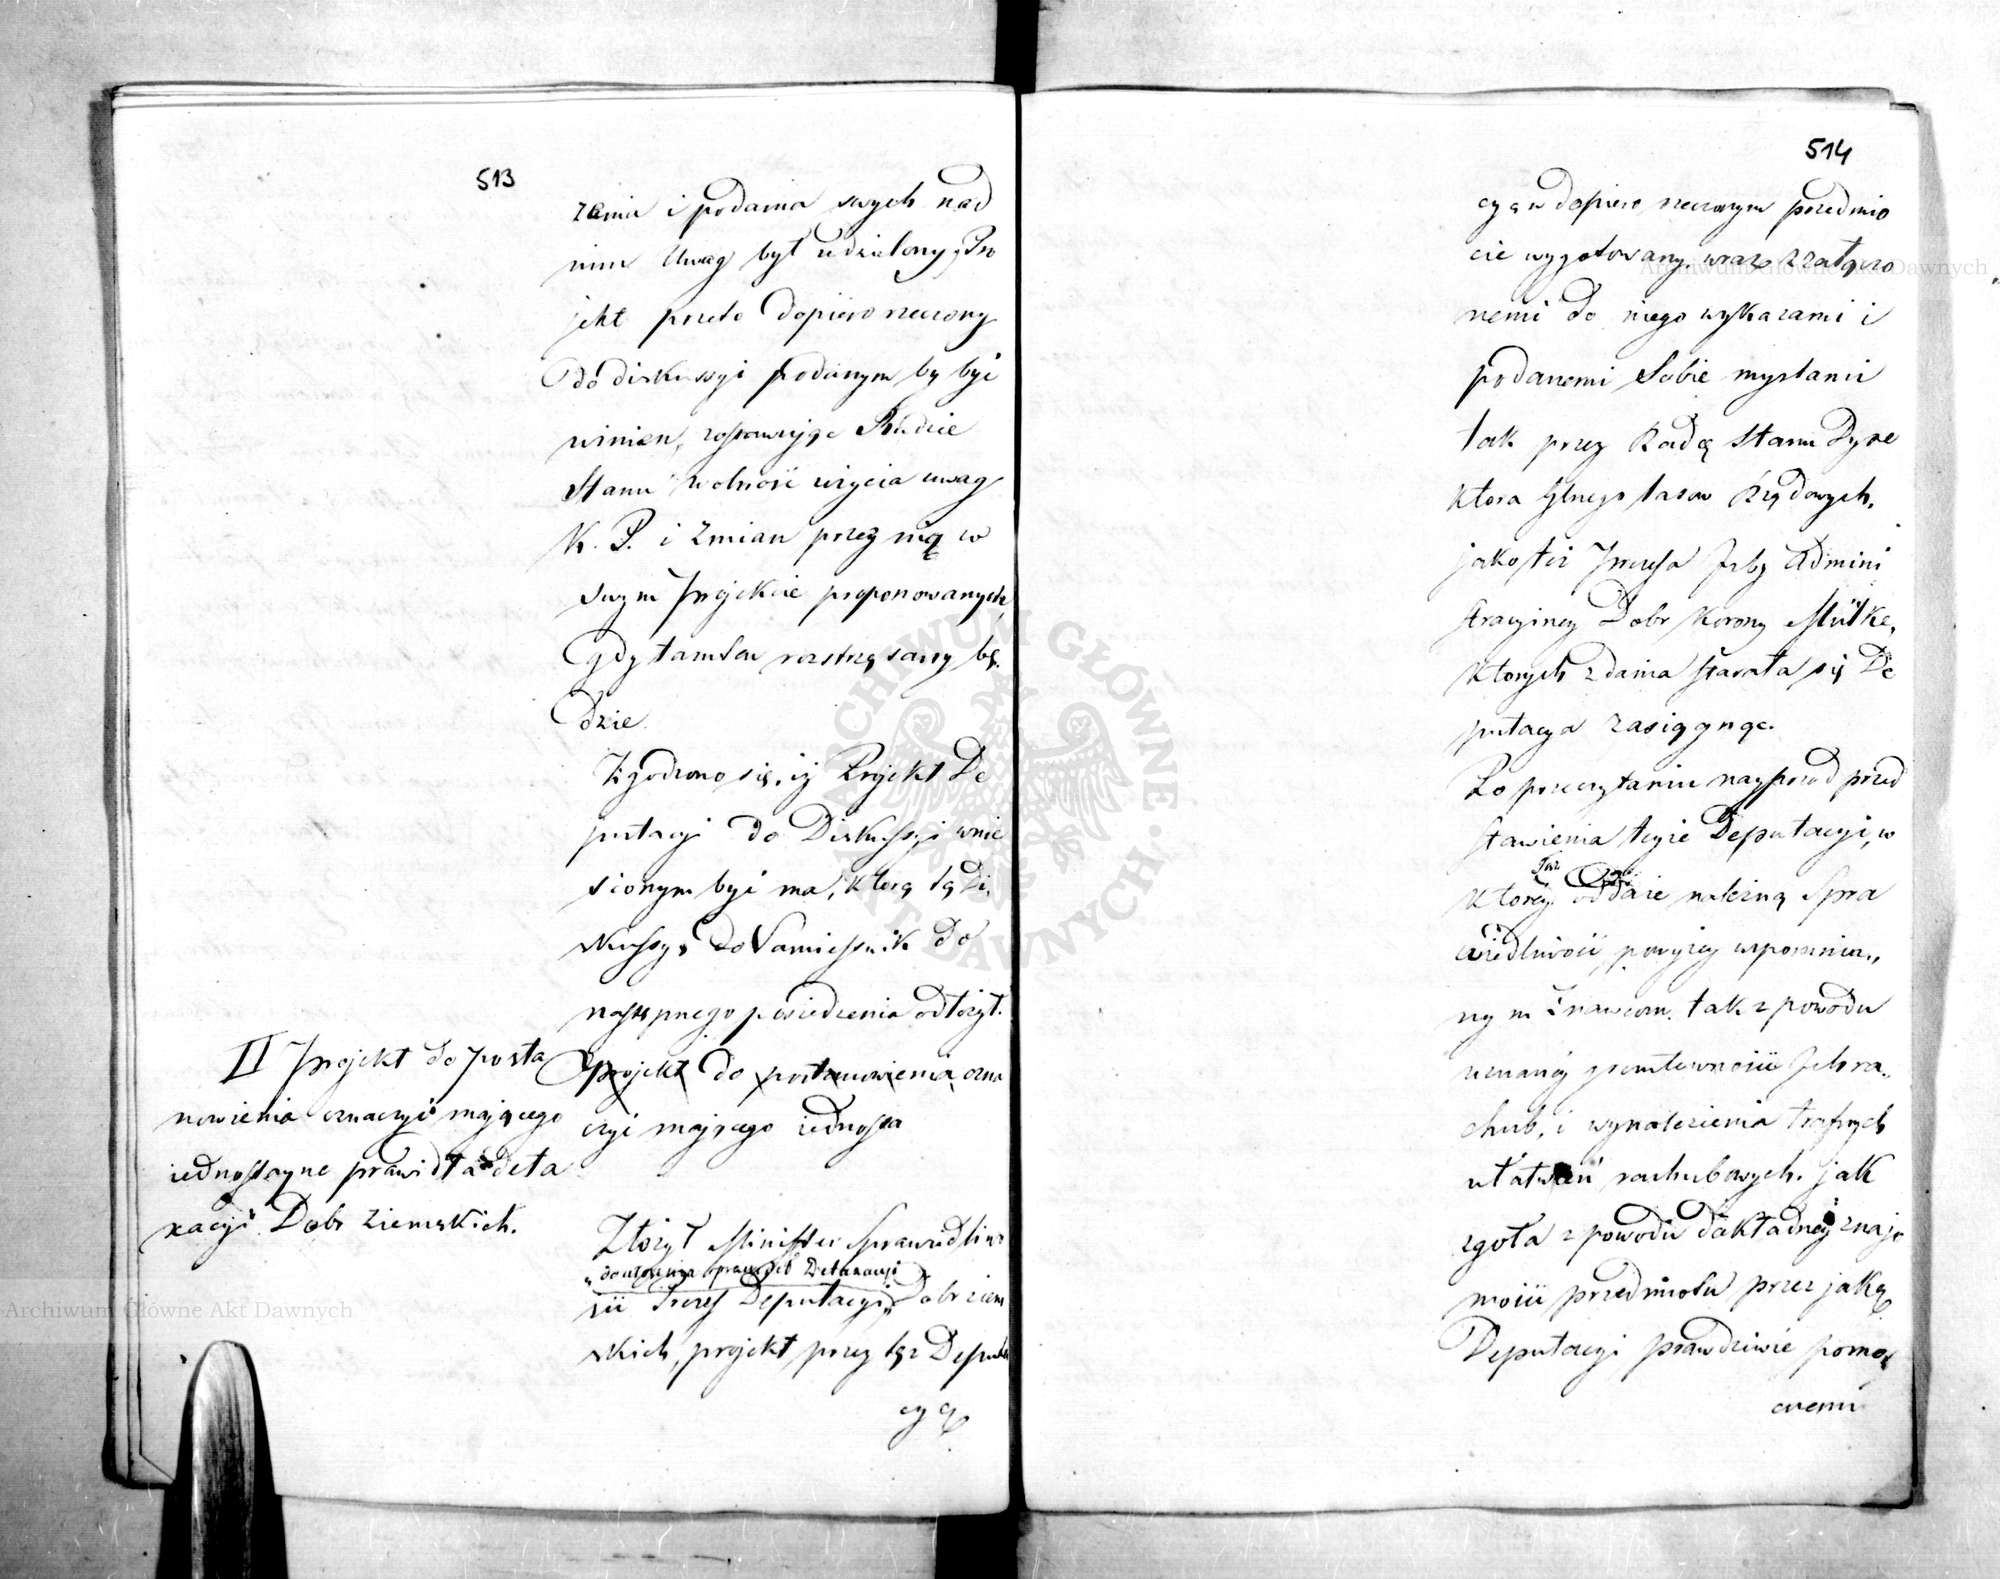 513
zenia i podania swych nad
nim Uwag był udzielony, Pro
jekt przeto dopiero rzeczony
do diskussyi podanym by być
winien, zostawując Radzie
Stanu wolność użycia uwag
K. P. i Zmian przez nią w
swym Projekcie proponowanych,
gdy tamten roztrząsany bę.
dzie.
Zgodzono się, iż Projekt De
putacyi do Diskussyi wnie
sionym być ma, którą tą Di,
skussyą do Namiestnik do
następnego posiedzenia odłożył.
II Projekt do posta
nowienia oznaczyć mającego
iednostayne prawidła deta
xacyi Dobr Ziemskich.
Projekt do postanowienia ozna
czyć mającego iednosta
Złożył Minister Sprawiedliwo
do ułożenia prawideł Detaxacyi
ści Prezes Deputacyi Dobr ziem
skich, projekt przez tęż Deputa
cyą
514
cyą w dopiero rzeczonym przedmio
cie wygotowany wraz z załączo
nemi do niego wykazami i
podanemi Sobie myślami
tak przez Radcę Stanu Dyre
ktora Głnego Lasow Rządowych,
jako też Prezesa Izby Admini
stracyiney Dobr Korony Mütke,
ktorych zdania starała się De
putacya zasiągnąć.
Po przeczytaniu nayprzod przed
stawienia teyże Deputacyi, w
Taż
ktorey oddaie należną Spra
wiedliwość powyżey wspomnia„
nym Znawcom, tak z powodu
uznaney gruntowności Ich ra„
chub, i wynalezienia trafnych
ułatwień rachubowych, jak
zgoła z powodu dokładney znajo
mości przedmiotu przez jaką
Deputacyi prawdziwie pomo„
cnemi
Archiwum Główne Akt Dawnych
Archiwum Główne Akt Dawnych
ARCHIWUM GŁÓWNE AKT DAWNYCH